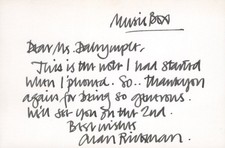 Music Box
Dear Ms. Dalrymple,
This is the note I had started
when I phoned. So.. thankyou
again for being so generous.
Will see you on the 2nd.
Best wishes
Alan Rickman.